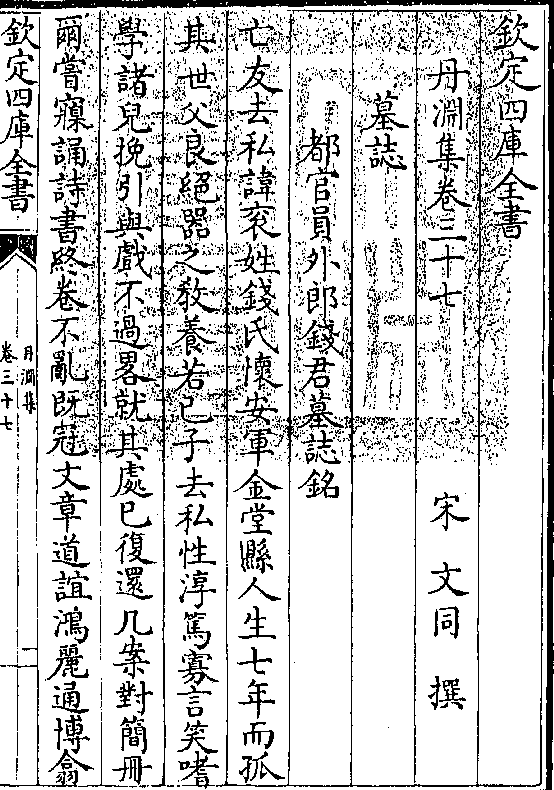 欽定四庫全書
丹淵集卷三十七
宋 文同 撰
墓誌
都官員外郎錢君墓誌銘
亡友去私諱衮姓錢氏懷安軍金堂縣人生七年而孤
其世父良絕器之敎養若已子去私性淳篤寡言笑嗜
學諸兒挽引與戲不過畧就其處已復還几案對簡冊
爾嘗寢誦詩書終卷不亂既冠文章道誼鴻麗通博翕
欽定四庫全書
丹淵集
卷三十七
一